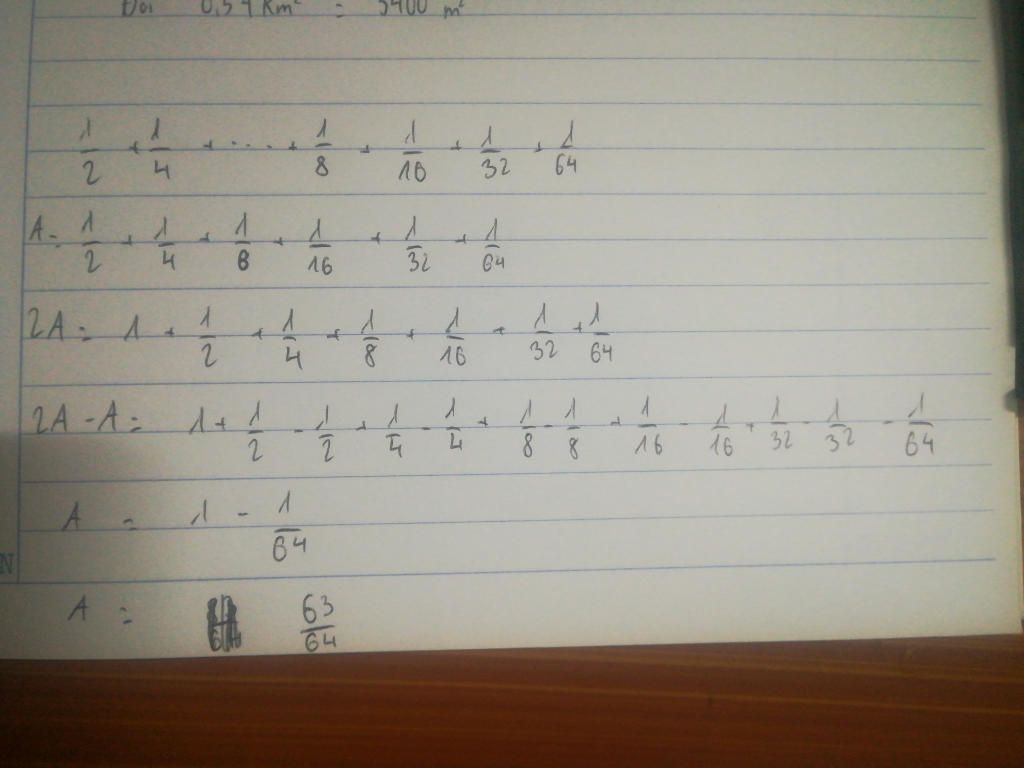 Đổi 0,54 Km² = 5400 m²
1/2 + 1/4 + .... + 1/8 + 1/16 + 1/32 + 1/64
A = 1/2 + 1/4 + 1/8 + 1/16 + 1/32 + 1/64
2A = 1 + 1/2 + 1/4 + 1/8 + 1/16 + 1/32 + 1/64
2A - A = 1 + 1/2 - 1/2 + 1/4 - 1/4 + 1/8 - 1/8 + 1/16 - 1/16 + 1/32 - 1/32 - 1/64
A = 1 - 1/64
N
A = 63/64